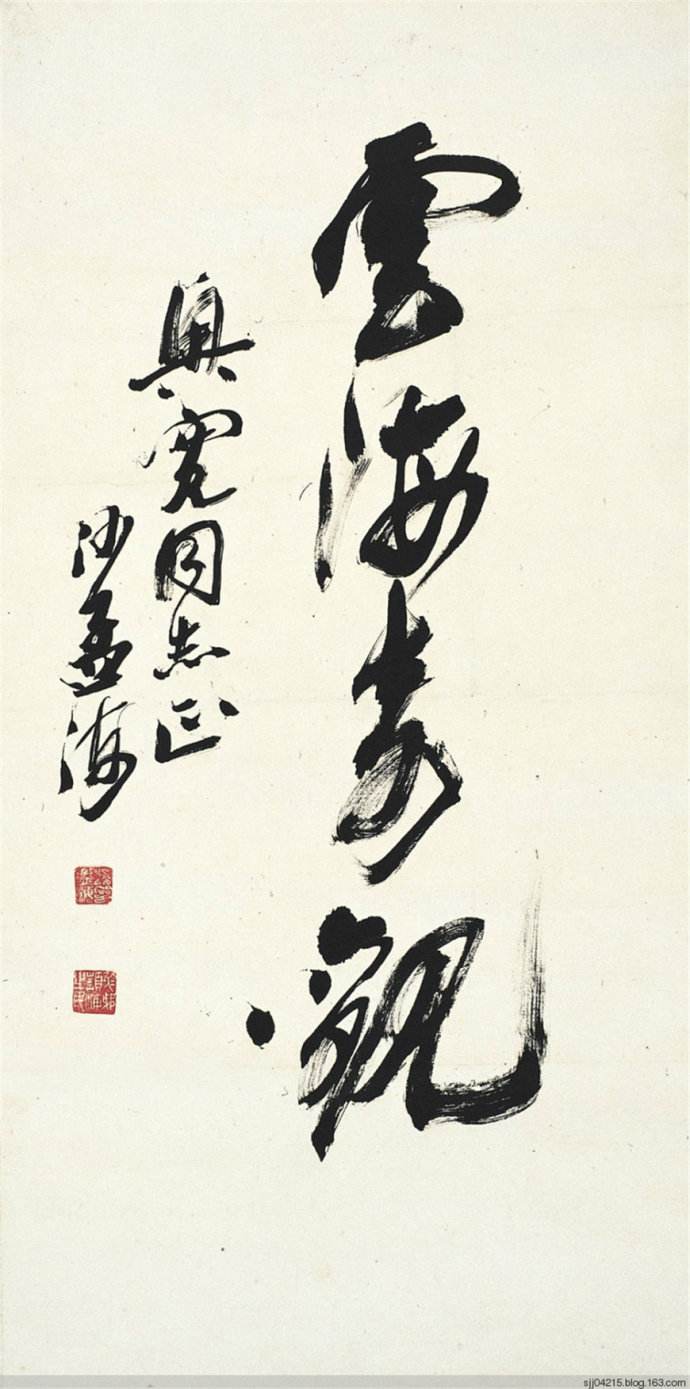 雲海奇觀
奐寬同志正
沙孟海
sjj04215.blog.163.com